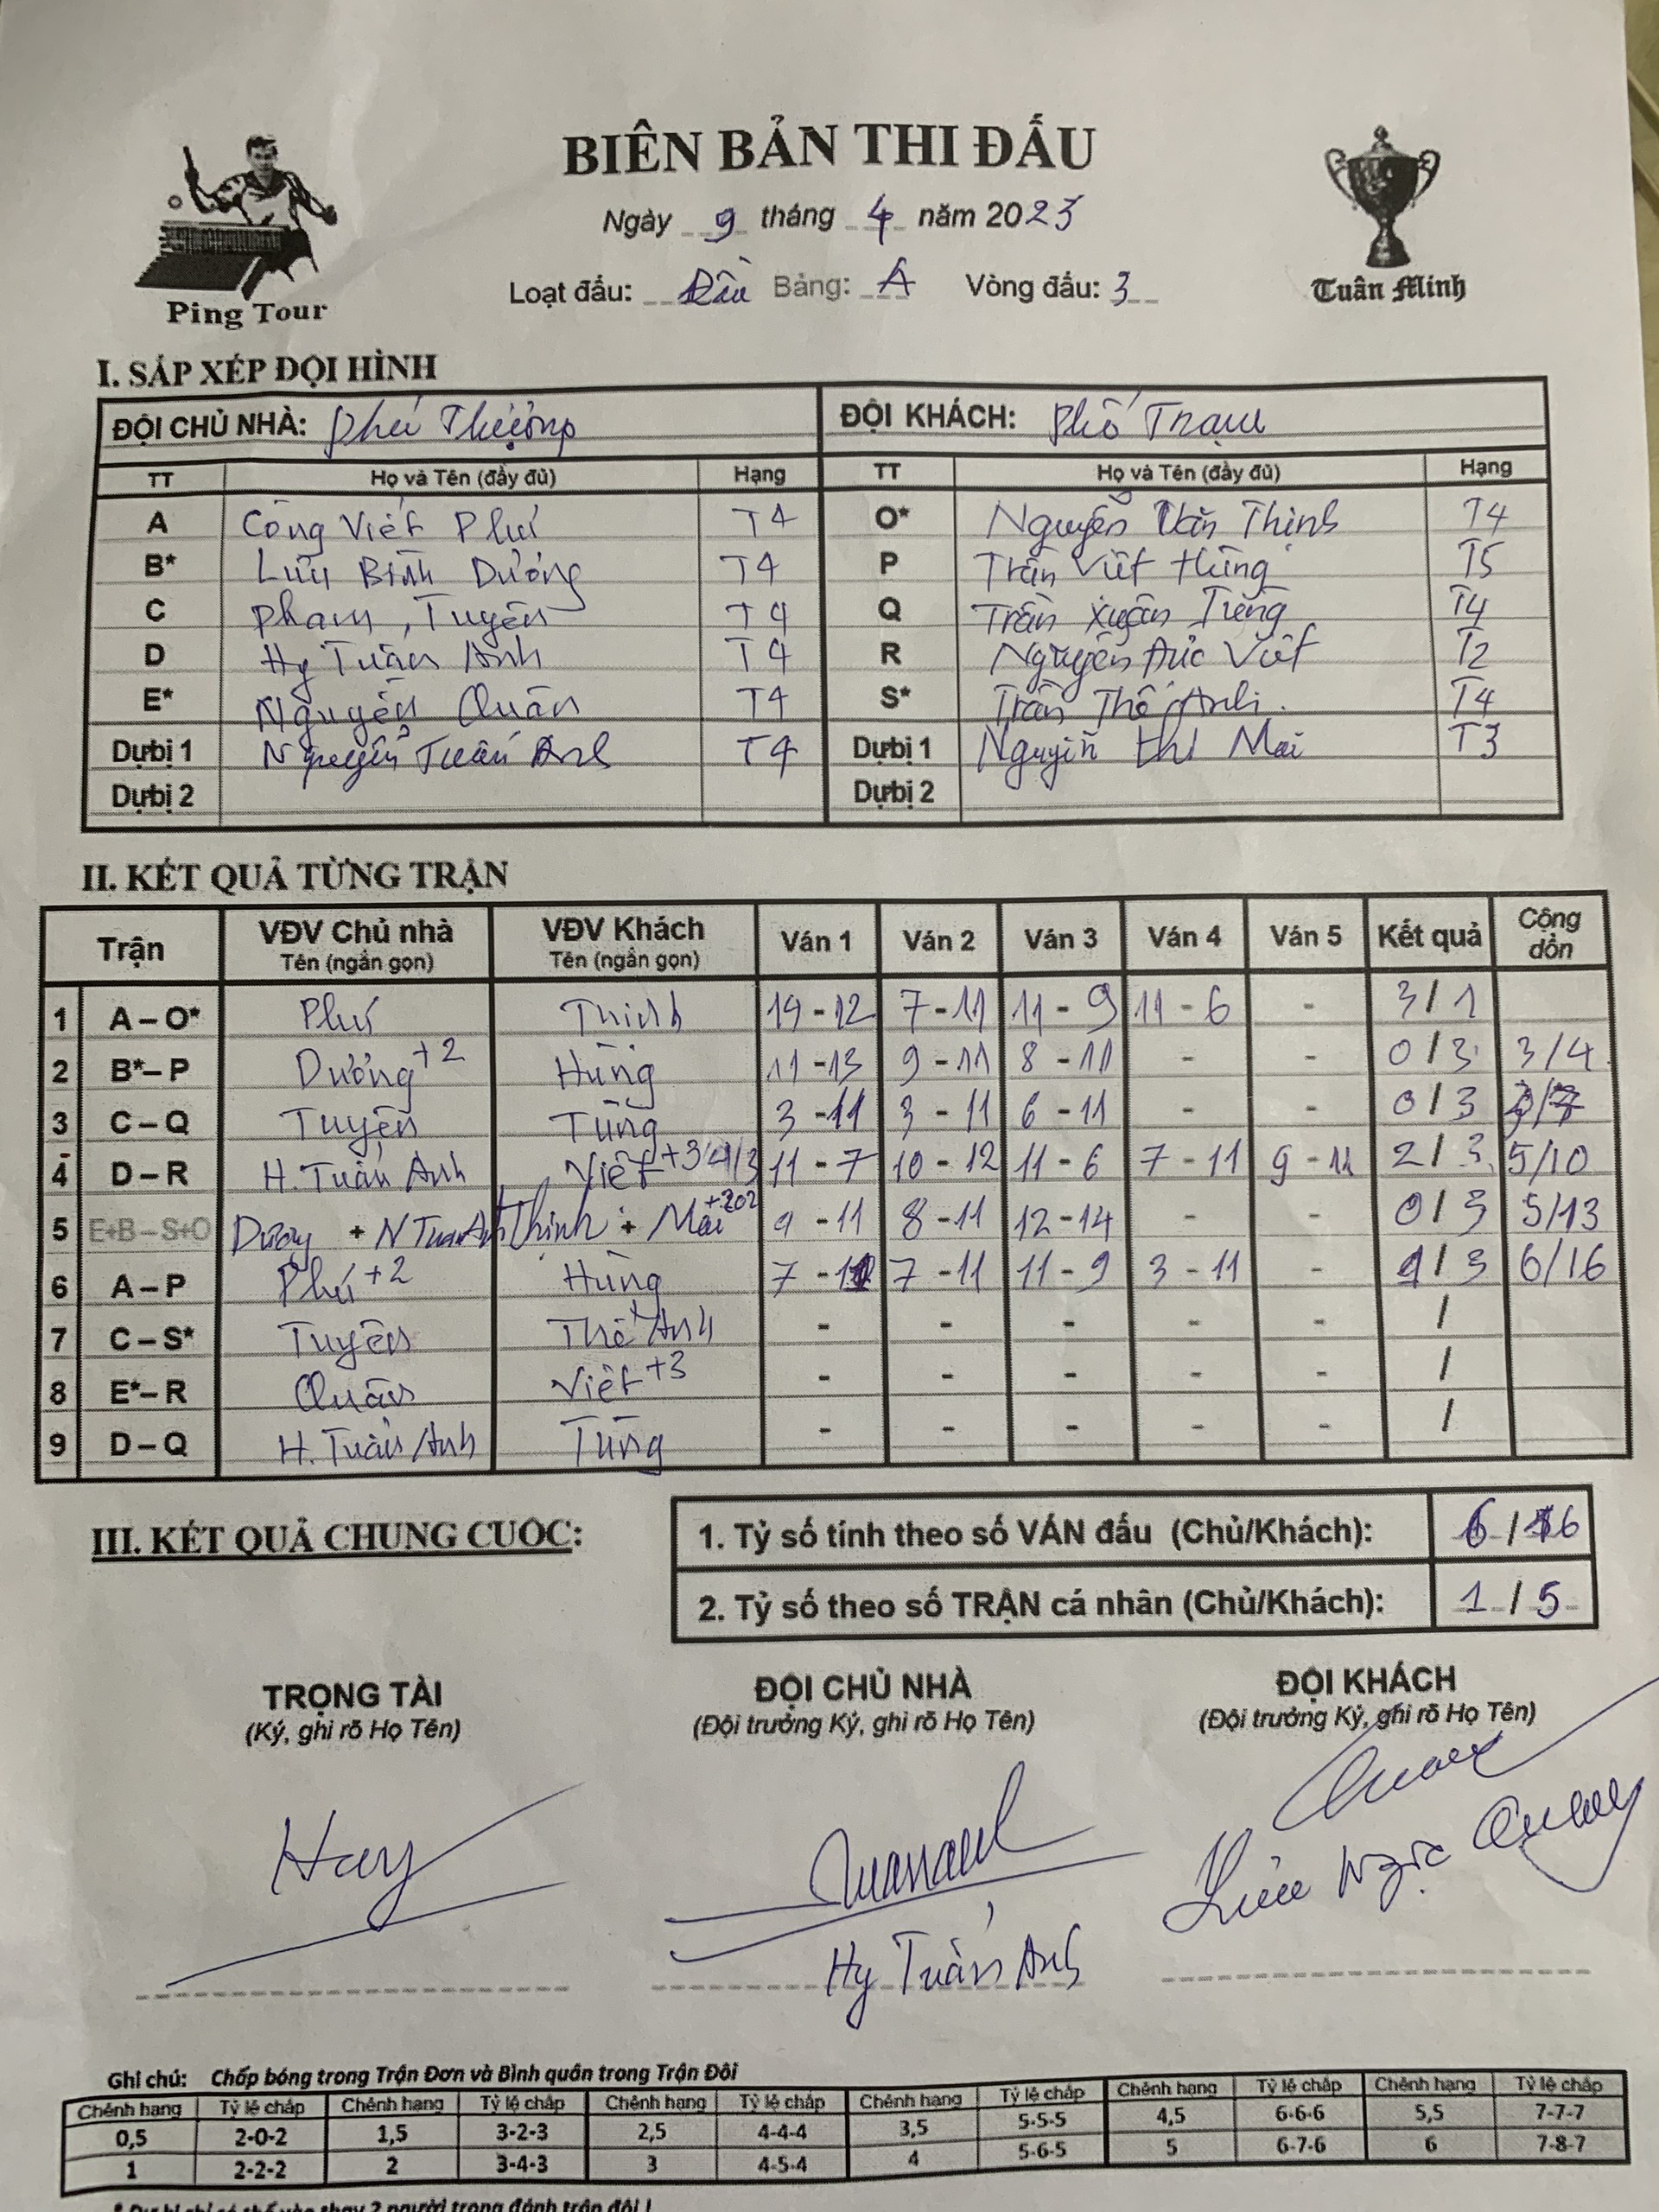 BIÊN BẢN THI ĐẤU
Ngày 9 tháng 4 năm 2023
Loạt đấu: Bảng: A Vòng đấu: 3
Ping Tour
Tuân Minh
I. SẮP XẾP ĐỘI HÌNH
ĐỘI CHỦ NHÀ: Phú Thượng ĐỘI KHÁCH: Phố Trạm
TT Họ và Tên (đầy đủ) Hạng TT Họ và Tên (đầy đủ) Hạng
A Công Viết Phú T4 O* Nguyễn Văn Thịnh T4
B* Lưu Bình Dương T4 P Trần Việt Hùng T5
C Phạm Tuyên T4 Q Trần Xuân Tùng T4
D Hy Tuấn Anh T4 R Nguyễn Đức Việt T2
E* Nguyễn Quân T4 S* Trần Thế Anh. T4
Dự bị 1 Nguyễn Tuấn Anh T4 Dự bị 1 Nguyễn thị Mai T3
Dự bị 2 Dự bị 2
II. KẾT QUẢ TỪNG TRẬN
Trận VĐV Chủ nhà Tên (ngắn gọn) VĐV Khách Tên (ngắn gọn) Ván 1 Ván 2 Ván 3 Ván 4 Ván 5 Kết quả Cộng dồn
1 A – O* Phú Thịnh 14 - 12 7 - 11 11 - 9 11 - 6 - 3 / 1
2 B* – P Dương +2 Hùng 11 - 13 9 - 11 8 - 11 - - 0 / 3 3/4
3 C – Q Tuyên Tùng 3 - 11 3 - 11 6 - 11 - - 0 / 3 3/7
4 D – R H. Tuấn Anh Việt +3/4/3 11 - 7 10 - 12 11 - 6 7 - 11 9 - 11 2 / 3 5/10
5 E+B – S+O Dương + N Tuấn Anh Thịnh + Mai +202 9 - 11 8 - 11 12 - 14 - - 0 / 3 5/13
6 A – P Phú +2 Hùng 7 - 11 7 - 11 11 - 9 3 - 11 - 1 / 3 6/16
7 C – S* Tuyên Thế Anh - - - - - /
8 E* – R Quân Việt +3 - - - - - /
9 D – Q H. Tuấn Anh Tùng - - - - - /
III. KẾT QUẢ CHUNG CUỘC:
1. Tỷ số tính theo số VÁN đấu (Chủ/Khách): 6 / 16
2. Tỷ số theo số TRẬN cá nhân (Chủ/Khách): 1 / 5
TRỌNG TÀI ĐỘI CHỦ NHÀ ĐỘI KHÁCH
(Ký, ghi rõ Họ Tên) (Đội trưởng Ký, ghi rõ Họ Tên) (Đội trưởng Ký, ghi rõ Họ Tên)
Hy Tuấn Anh
Ghi chú: Chấp bóng trong Trận Đơn và Bình quân trong Trận Đôi
Chênh hạng Tỷ lệ chấp Chênh hạng Tỷ lệ chấp Chênh hạng Tỷ lệ chấp Chênh hạng Tỷ lệ chấp Chênh hạng Tỷ lệ chấp Chênh hạng Tỷ lệ chấp
0,5 2-0-2 1,5 3-2-3 2,5 4-4-4 3,5 5-5-5 4,5 6-6-6 5,5 7-7-7
1 2-2-2 2 3-4-3 3 4-5-4 4 5-6-5 5 6-7-6 6 7-8-7
* Dự bị chỉ có thể vào thay 2 người trong đánh trận đôi !